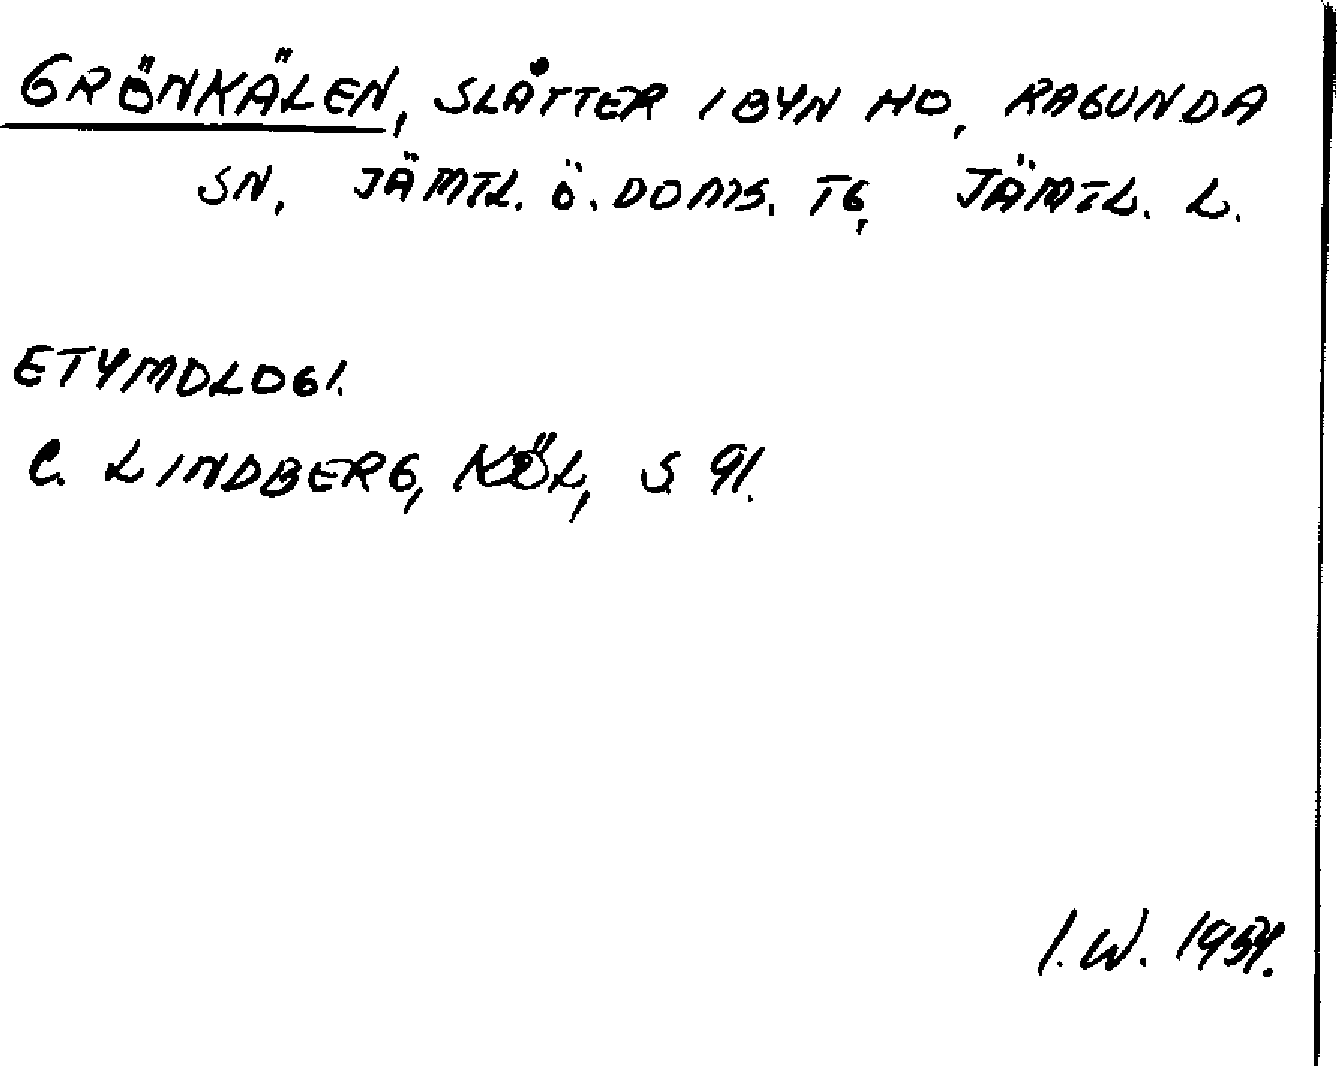 GRÖNKÄLEN, SLÅTTER I BYN HO, RAGUNDA
SN, JÄMTL. Ö. DOMS. TG, JÄMTL. L.
ETYMOLOGI.
C. LINDBERG, KÖL, S 91.
I.W. 1954.